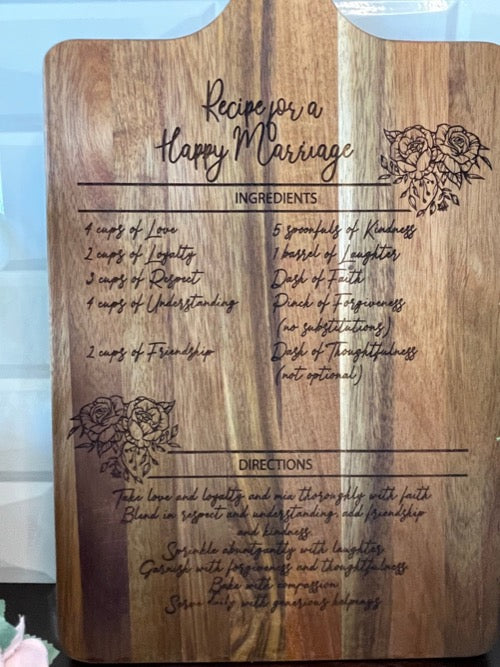 Recipe for a
Happy Marriage
INGREDIENTS
4 cups of Love
2 cups of Loyalty
3 cups of Respect
4 cups of Understanding
2 cups of Friendship
5 spoonfuls of Kindness
1 barrel of Laughter
Dash of Faith
Pinch of Forgiveness
(no substitutions)
Dash of Thoughtfulness
(not optional)
DIRECTIONS
Take love and loyalty and mix thoroughly with faith
Blend in respect and understanding, add friendship
and kindness.
Sprinkle abuntgantly with laughter.
Garnish with forgiveness and thoughtfulness.
Bake with compassion.
Serve daily with generious helpings